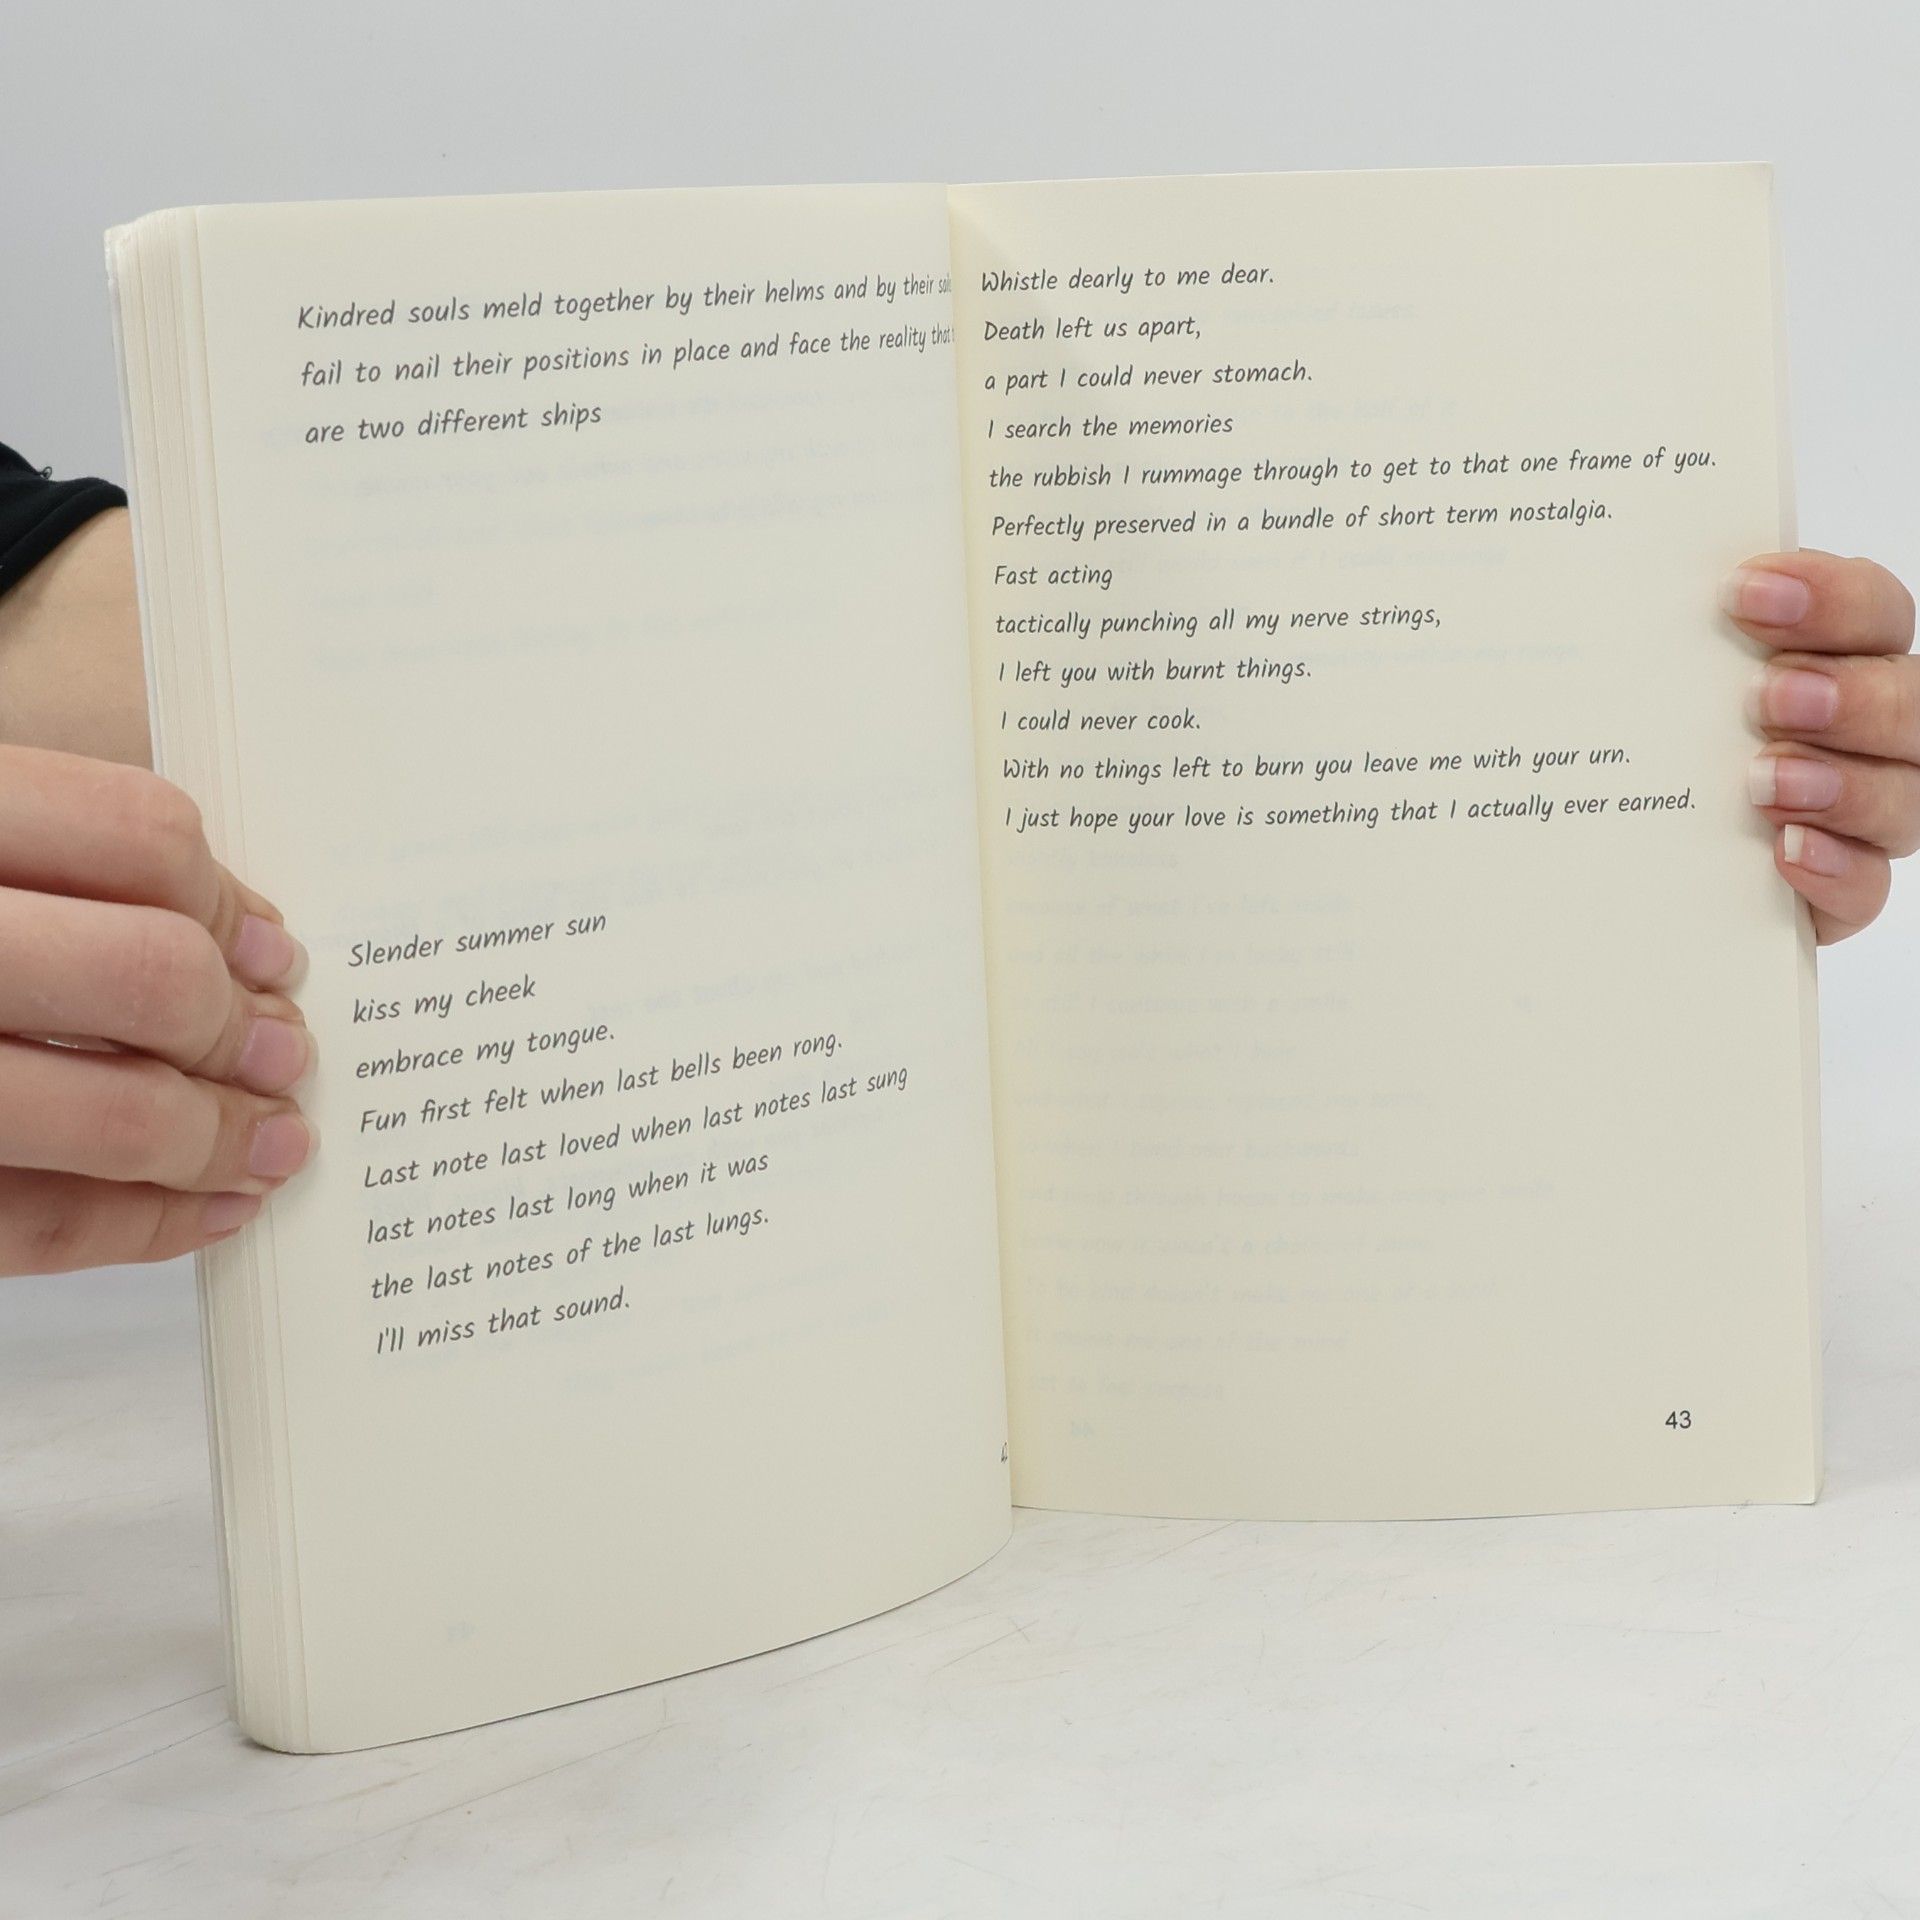 Kindred souls meld together by their helms and by their
fail to nail their positions in place and face the reality that
are two different ships
Slender summer sun
kiss my cheek
embrace my tongue.
Fun first felt when last bells been rong.
Last note last loved when last notes last sung
last notes last long when it was
the last notes of the last lungs.
I'll miss that sound.
Whistle dearly to me dear.
Death left us apart,
a part I could never stomach.
I search the memories
the rubbish I rummage through to get to that one frame of you.
Perfectly preserved in a bundle of short term nostalgia.
Fast acting
tactically punching all my nerve strings,
I left you with burnt things.
I could never cook.
With no things left to burn you leave me with your urn.
I just hope your love is something that I actually ever earned.
43